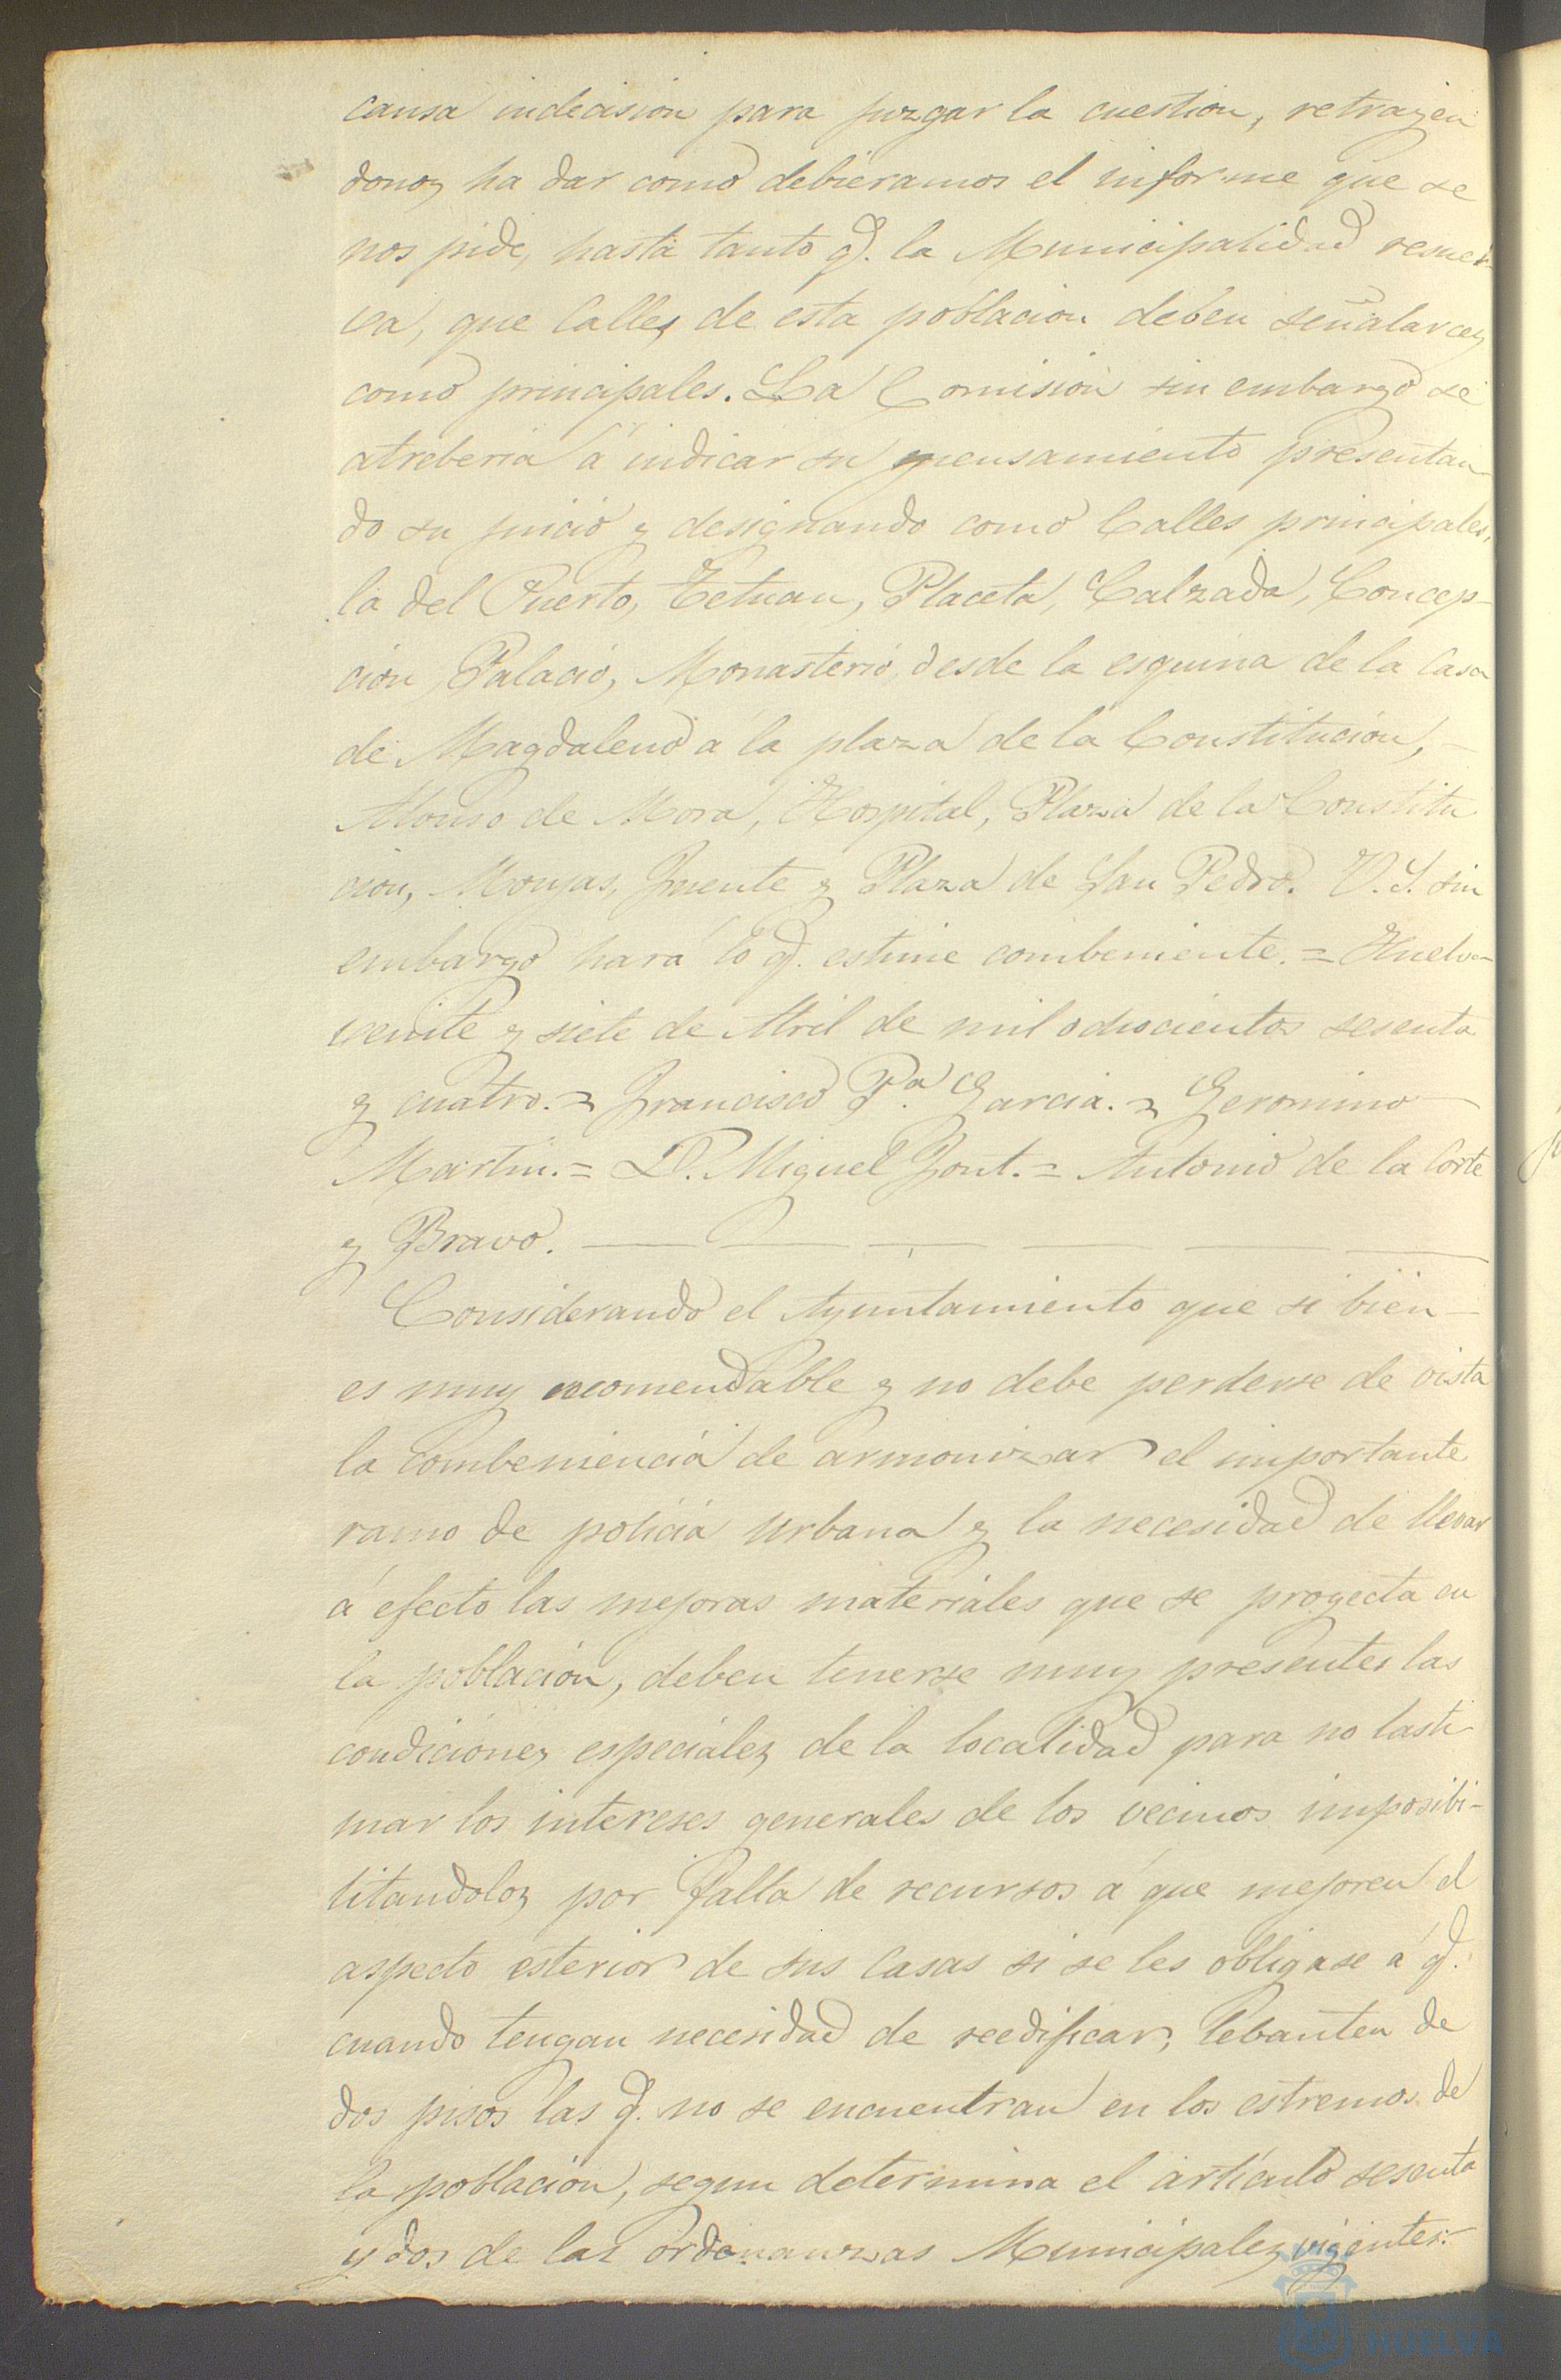 causa indecision para juzgar la cuestion, retrayen
donos ha dar como debieramos el informe que se
nos pide, hasta tanto q. la Municipalidad resuel-
va, que Calles de esta poblacion deben señalarces
como principales. La Comision sin embargo se
atreberia á indicar su pensamiento presentan
do su juicio y designando como Calles principales,
la del Puerto, Tetuan, Placeta, Calzada, Concep-
cion, Palacio, Monasterio, desde la esquina de la Casa
de Magdaleno á la plaza de la Constitucion,
Alonso de Mora, Hospital, Plaza de la Constitu
cion, Monjas, Fuente y Plaza de San Pedro. V. S. sin
embargo hará lo q. estime combeniente. = Huelva
veinte y siete de Abril de mil ochocientos sesenta
y cuatro. = Francisco Pª. Garcia. = Geronimo
Martin. = D. Miguel Font. = Antonio de la Corte
y Bravo.
Considerando el Ayuntamiento que si bien
es muy recomendable y no debe perderse de vista
la combeniencia de armonizar el importante
ramo de policia urbana y la necesidad de llevar
á efecto las mejoras materiales que se proyecta en
la poblacion, deben tenerse muy presentes las
condiciones especiales de la localidad para no lasti
mar los intereses generales de los vecinos imposibi-
litandolos por falta de recursos á que mejoren el
aspecto esterior de sus Casas si se les obligase á q.
cuando tengan necesidad de reedificar, lebanten de
dos pisos las q. no se encuentran en los estremos de
la poblacion, segun determina el articulo sesenta
y dos de las ordenanzas Municipales vigentes.
HUELVA